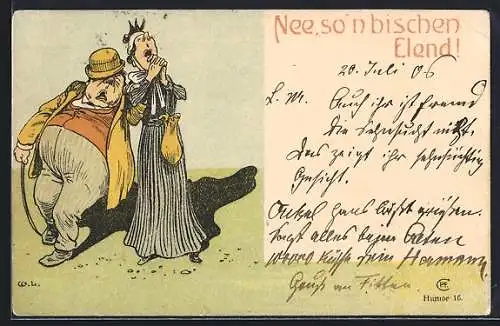 Nee, so'n bischen
Elend!
20. Juli 06
L. M. Auch ihr ist fremd
die Sehnsucht nicht.
Das zeigt ihr sehnsüchtig
Gesicht.
Onkel Hans läßt grüßen.
Sagt alles beim Alten
10000 Küsse Dein Hermann
Gruß an
W.L.
Humor 16.